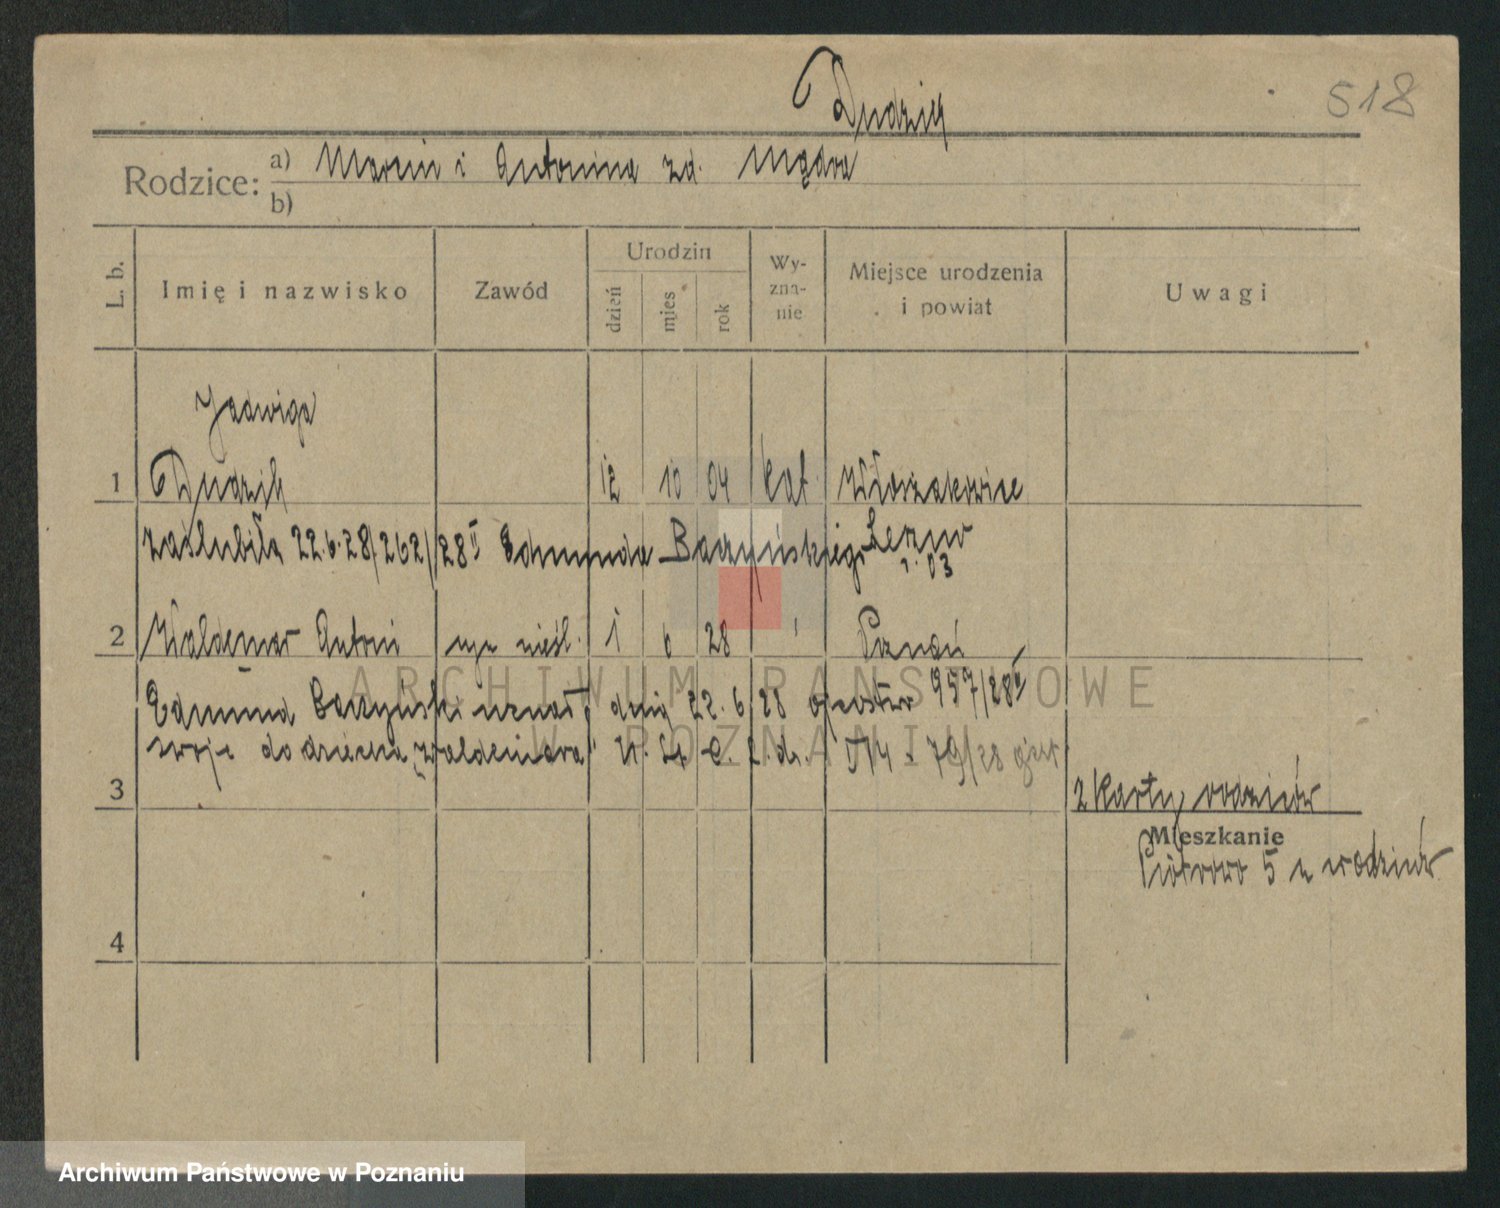 Dudzik
518
Rodzice:
a) Marcin i Antonina zd. Mądra
b)
L. b.
Imię i nazwisko
Zawód
Urodzin
dzień
mies
rok
Wy-
zna-
nie
Miejsce urodzenia
i powiat
Uwagi
Jadwiga
1 Dudzik 12 10 04 kat. Włoszakowice
zaślubiła 22.6.28/262/28 II Edmunda Baczyńskiego Leszno
r. 03
2 Waldemar Antoni syn nieśl. 1 6 28 " Poznań
Edmund Baczyński uznał dnia 22. 6 28 ojcostwo 957/28
swoje do dziecka "Waldemara" U. St. C. 79/28
3
2 Karty rodziców
Mieszkanie
Piotrowo 5 u rodziców
4
ARCHIWUM PAŃSTWOWE
W POZNANIU
Archiwum Państwowe w Poznaniu